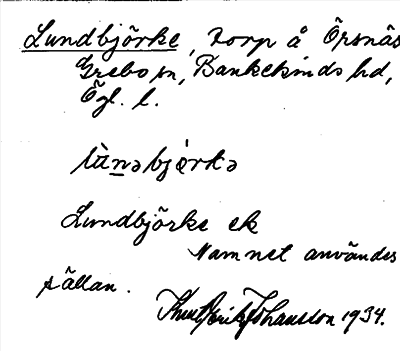 Lundbjörke, torp å Örsnäs
Grebo sn, Bankekinds hd,
Ögl. l.
lùnəbjérkə
Lundbjörke ek
Namnet användes
sällan.
Knut Erik Johansson 1934.